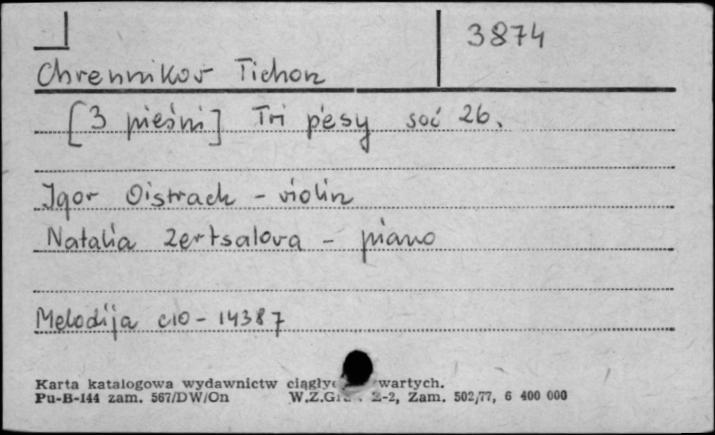 3874
Chrennikov Tichon
[3 pieśni] Tri p'esy soč 26.
Igor Oistrach - violin
Natalia Zertsalova - piano
Melodija C10 - 14387
Karta katalogowa wydawnictw wartych.
Pu-B-144 zam. 567/DW/On W.Z.Gr Z-2, Zam. 502/77, 6 400 000